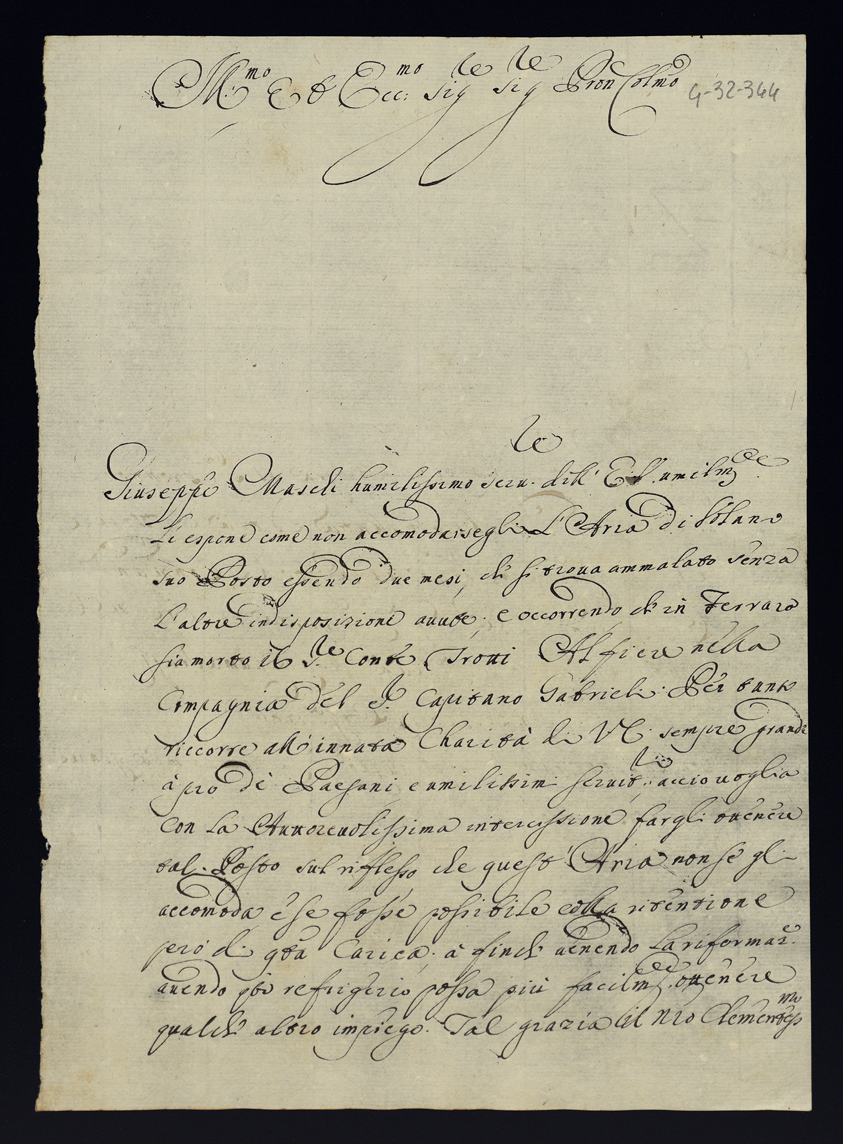 Ill.mo Et Ecc:mo Sig.re Sig.re Pron Colmo 4-32-344
Giuseppe Maseli humilissimo seru. dell' E.V. umilm.te
Le espone come non accomodarsegli L'Aria di
suo Posto essendo due mesi, che si troua ammalato senza
L'altre indisposizioni auute; e occorrendo che in Ferrara
sia morto il S.re Conte Trotti Alfiere nella
Compagnia del S.r Capitano Gabrieli. Per tanto
riccorre all'innata Charità di VE. sempre grande
à pro de Paesani e umilissimi seruit.ri accio uoglia
con la Auuoreuolissima intercessione fargli ottenere
tal. Posto sul riflesso che quest'Aria non se gli
accomoda, e se fosse possibile colla ritentione
pero di qta Carica. à finche uenendo la riforma
auendo qto refrigerio possa più facilm.te ottenere
qualche altro impiego. Tal grazia il nro Clementiss.mo